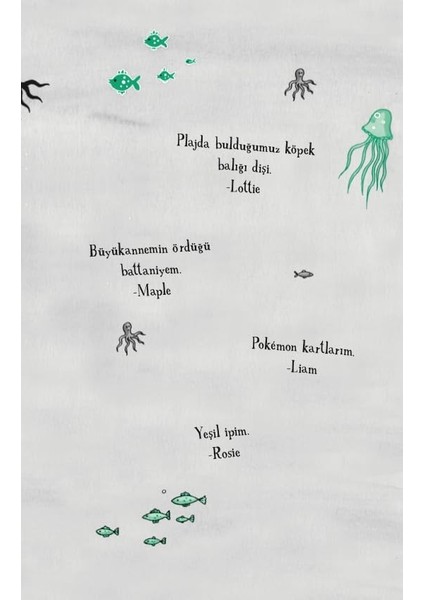 Plajda bulduğumuz köpek
balığı dişi.
-Lottie
Büyükannemin ördüğü
battaniyem.
-Maple
Pokémon kartlarım.
-Liam
Yeşil ipim.
-Rosie